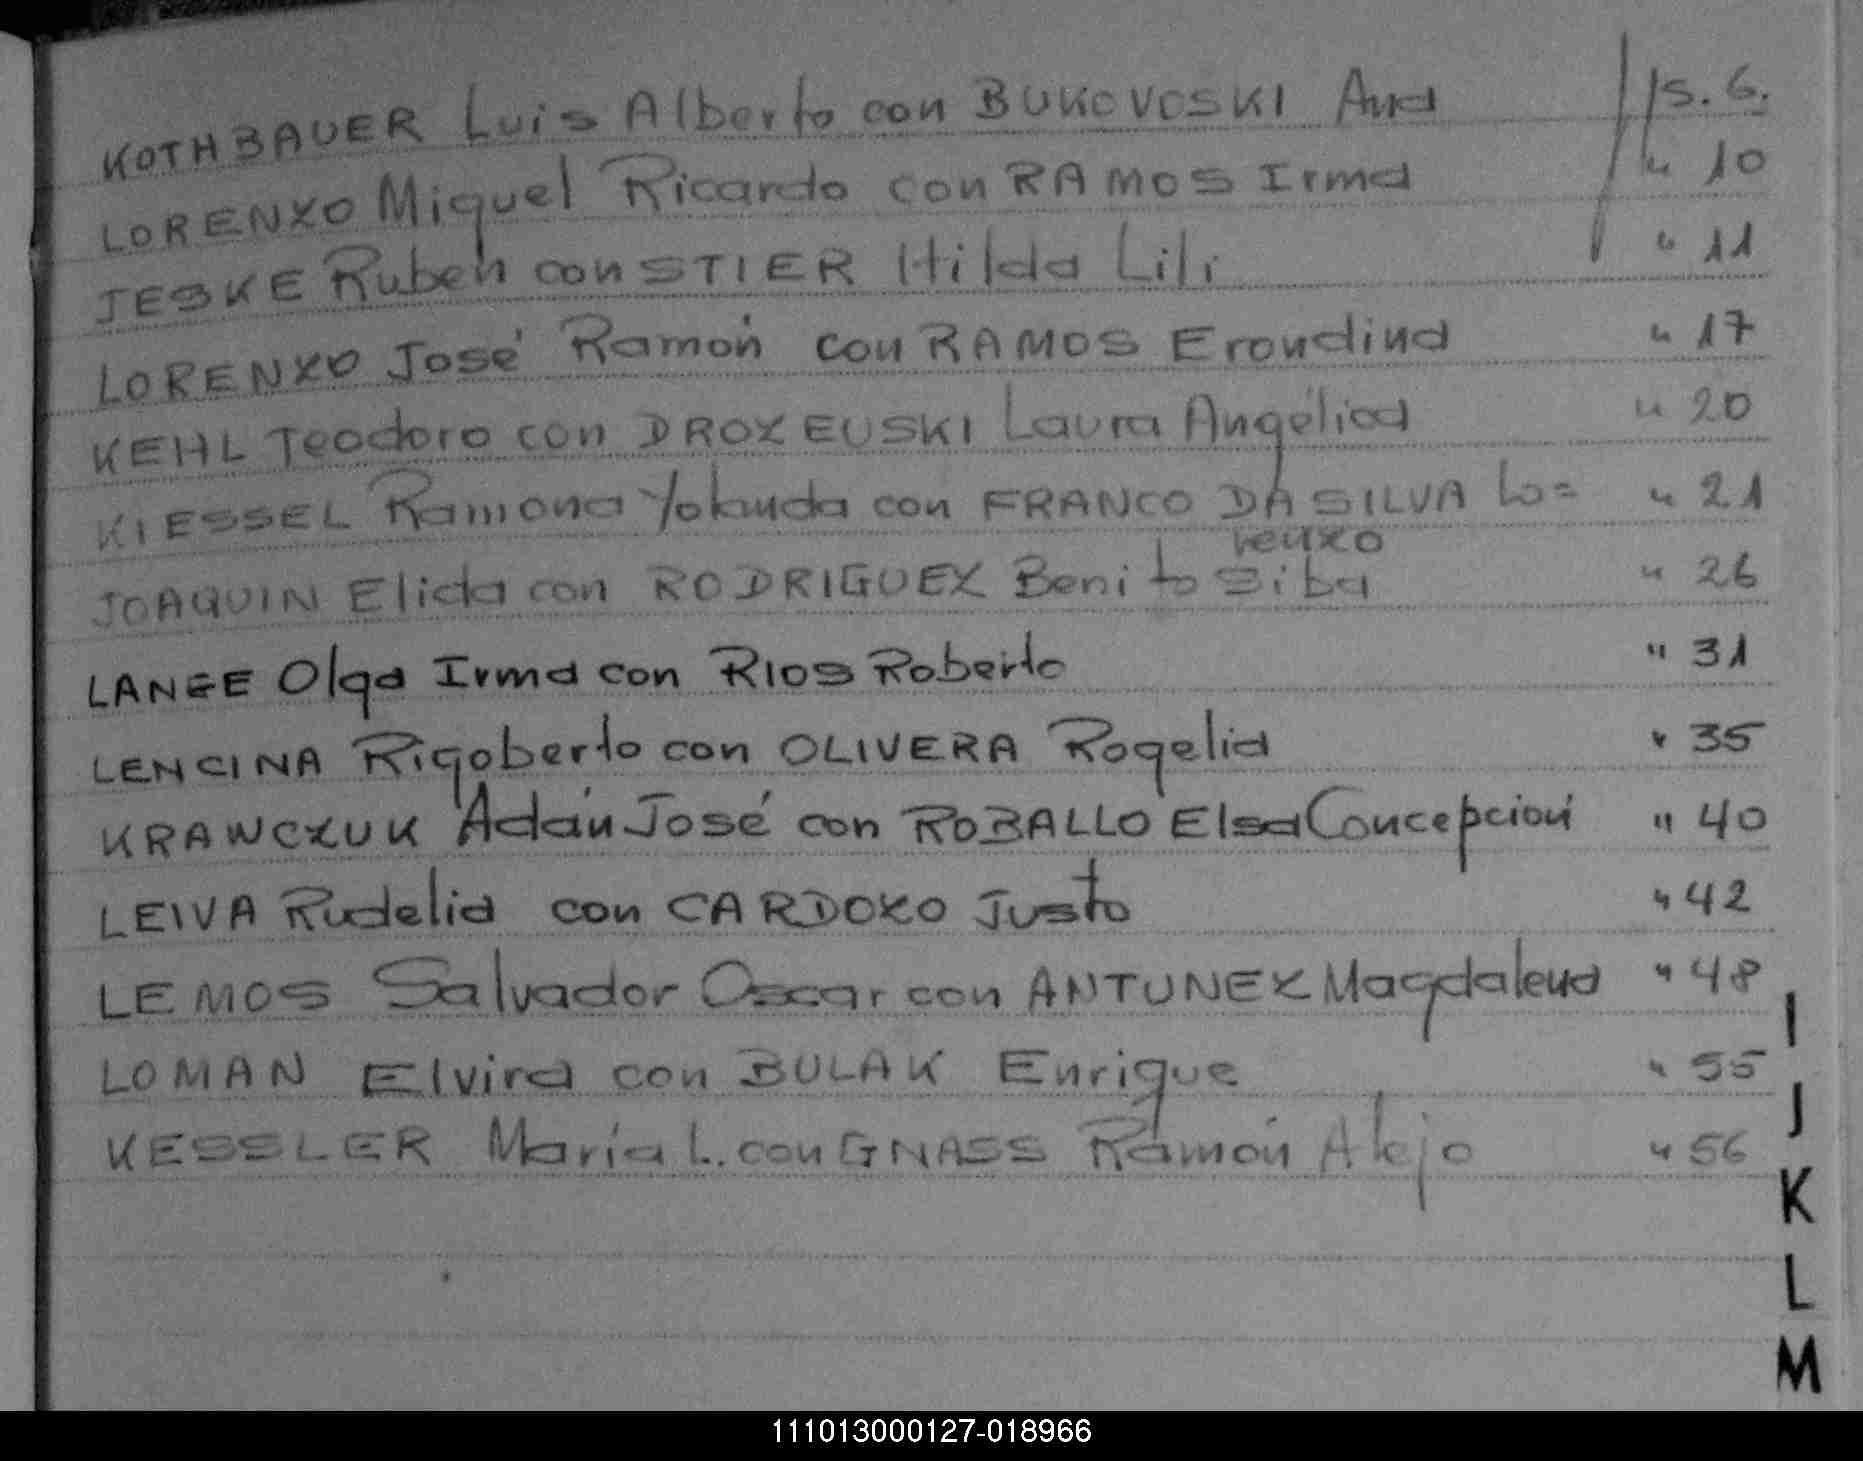 KOTHBAUER Luis Alberto con BUKOVOSKI Ana fs. 6.
LORENZO Miguel Ricardo con RAMOS Irma " 10
JESKE Ruben con STIER Hilda Lili " 11
LORENZO José Ramón con RAMOS Erondina " 17
KEHL Teodoro con DROZEUSKI Laura Angélica " 20
KIESSEL Ramona Yolanda con FRANCO DA SILVA Lo= " 21
renzo
JOAQUIN Elida con RODRIGUEZ Benito Siba " 26
LANGE Olga Irma con RIOS Roberto " 31
LENCINA Rigoberto con OLIVERA Rogelia " 35
KRAWCZUK Adán José con ROBALLO Elsa Concepción " 40
LEIVA Rudelia con CARDOZO Justo " 42
LEMOS Salvador Oscar con ANTUNEZ Magdalena " 48
LOMAN Elvira con BULAK Enrique " 55
KESSLER María L. con GNASS Ramón Alejo " 56
I
J
K
L
M
111013000127-018966